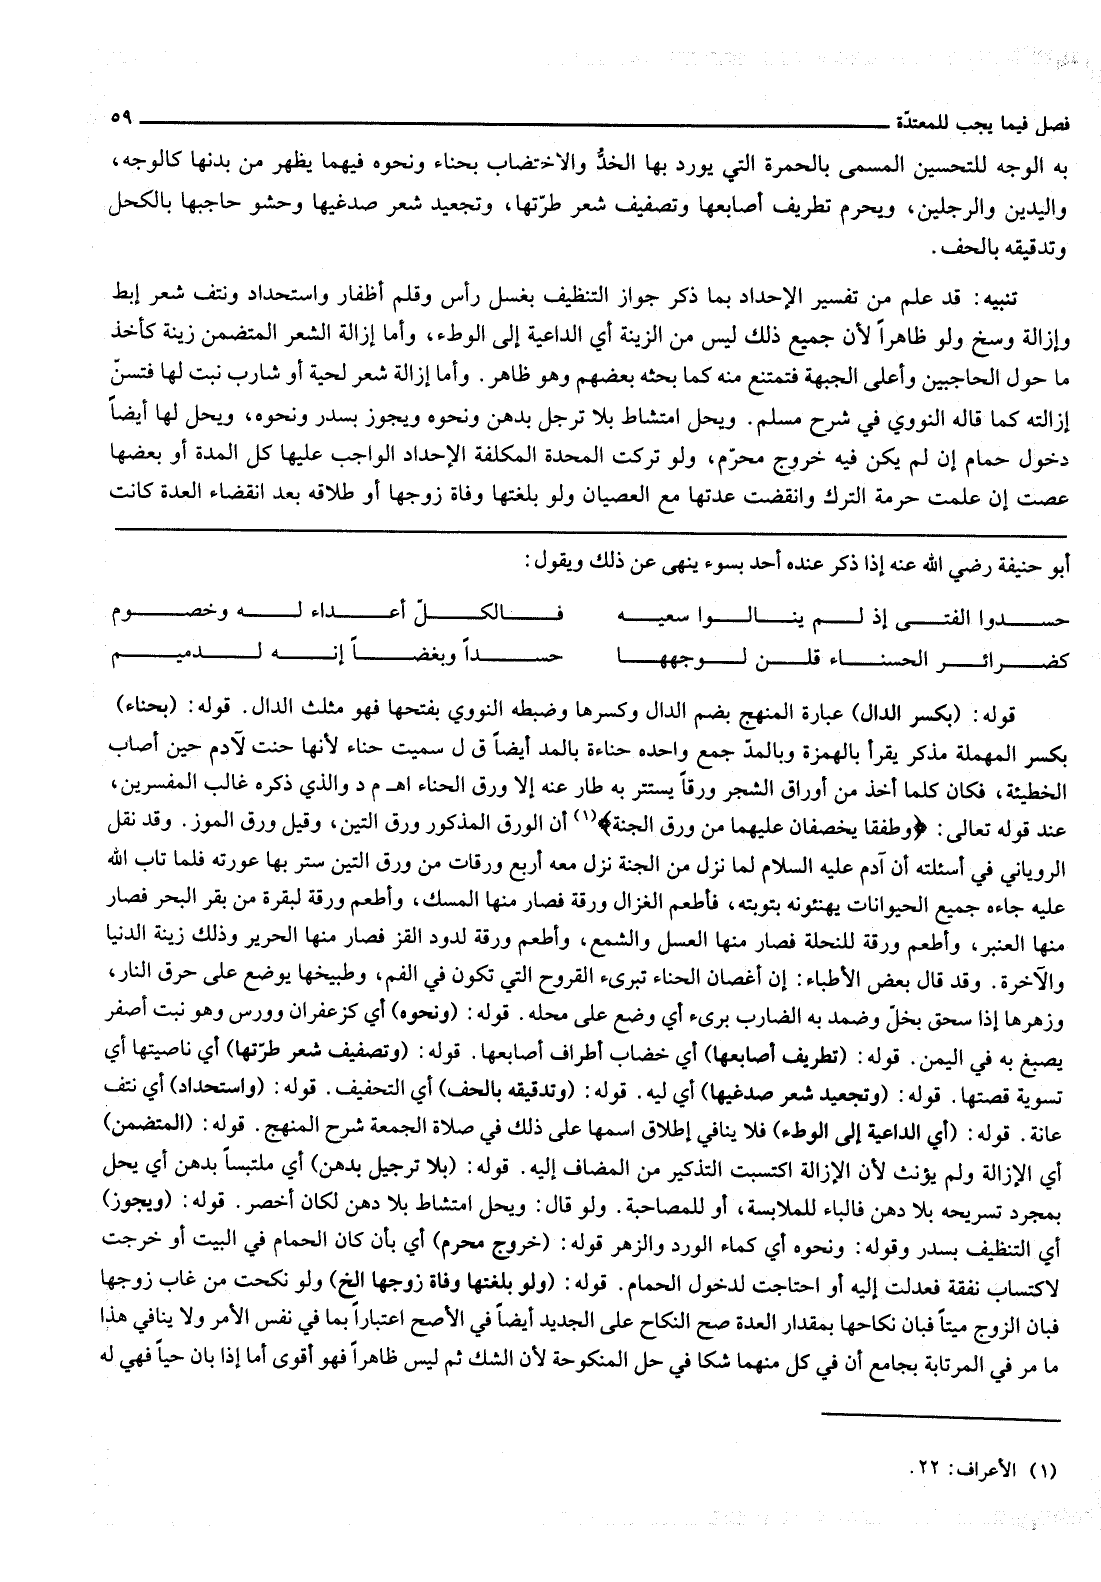 فصل فيما يجب للمعتدّة ٥٩
به الوجه للتحسين المسمى بالحمرة التي يورد بها الخدُّ والاختضاب بحناء ونحوه فيهما يظهر من بدنها كالوجه،
واليدين والرجلين، ويحرم تطريف أصابعها وتصفيف شعر طرّتها، وتجعيد شعر صدغيها وحشو حاجبها بالكحل
وتدقيقه بالحف.
تنبيه: قد علم من تفسير الإحداد بما ذكر جواز التنظيف بغسل رأس وقلم أظفار واستحداد ونتف شعر إبط
وإزالة وسخ ولو ظاهراً لأن جميع ذلك ليس من الزينة أي الداعية إلى الوطء، وأما إزالة الشعر المتضمن زينة كأخذ
ما حول الحاجبين وأعلى الجبهة فتمتنع منه كما بحثه بعضهم وهو ظاهر. وأما إزالة شعر لحية أو شارب نبت لها فتسنّ
إزالته كما قاله النووي في شرح مسلم. ويحل امتشاط بلا ترجل بدهن ونحوه ويجوز بسدر ونحوه، ويحل لها أيضاً
دخول حمام إن لم يكن فيه خروج محرّم، ولو تركت المحدة المكلفة الإحداد الواجب عليها كل المدة أو بعضها
عصت إن علمت حرمة الترك وانقضت عدتها مع العصيان ولو بلغتها وفاة زوجها أو طلاقه بعد انقضاء العدة كانت
أبو حنيفة رضي الله عنه إذا ذكر عنده أحد بسوء ينهى عن ذلك ويقول:
حسدوا الفتى إذ لم ينالوا سعيه فالكلّ أعداء له وخصوم
كضرائر الحسناء قلن لوجهها حسداً وبغضاً إنه لدميم
قوله: (بكسر الدال) عبارة المنهج بضم الدال وكسرها وضبطه النووي بفتحها فهو مثلث الدال. قوله: (بحناء)
بكسر المهملة مذكر يقرأ بالهمزة وبالمدّ جمع واحده حناءة بالمد أيضاً ق ل سميت حناء لأنها حنت لآدم حين أصاب
الخطيئة، فكان كلما أخذ من أوراق الشجر ورقاً يستتر به طار عنه إلا ورق الحناء اهـ م د والذي ذكره غالب المفسرين،
عند قوله تعالى: ﴿وطفقا يخصفان عليهما من ورق الجنة﴾(١) أن الورق المذكور ورق التين، وقيل ورق الموز. وقد نقل
الروياني في أسئلته أن آدم عليه السلام لما نزل من الجنة نزل معه أربع ورقات من ورق التين ستر بها عورته فلما تاب الله
عليه جاءه جميع الحيوانات يهنئونه بتوبته، فأطعم الغزال ورقة فصار منها المسك، وأطعم ورقة لبقرة من بقر البحر فصار
منها العنبر، وأطعم ورقة للنحلة فصار منها العسل والشمع، وأطعم ورقة لدود القز فصار منها الحرير وذلك زينة الدنيا
والآخرة. وقد قال بعض الأطباء: إن أغصان الحناء تبرىء القروح التي تكون في الفم، وطبيخها يوضع على حرق النار،
وزهرها إذا سحق بخلّ وضمد به الضارب برىء أي وضع على محله. قوله: (ونحوه) أي كزعفران وورس وهو نبت أصفر
يصبغ به في اليمن. قوله: (تطريف أصابعها) أي خضاب أطراف أصابعها. قوله: (وتصفيف شعر طرّتها) أي ناصيتها أي
تسوية قصتها. قوله: (وتجعيد شعر صدغيها) أي ليه. قوله: (وتدقيقه بالحف) أي التحفيف. قوله: (واستحداد) أي نتف
عانة. قوله: (أي الداعية إلى الوطء) فلا ينافي إطلاق اسمها على ذلك في صلاة الجمعة شرح المنهج. قوله: (المتضمن)
أي الإزالة ولم يؤنث لأن الإزالة اكتسبت التذكير من المضاف إليه. قوله: (بلا ترجيل بدهن) أي ملتبساً بدهن أي يحل
بمجرد تسريحه بلا دهن فالباء للملابسة، أو للمصاحبة. ولو قال: ويحل امتشاط بلا دهن لكان أخصر. قوله: (ويجوز)
أي التنظيف بسدر وقوله: ونحوه أي كماء الورد والزهر قوله: (خروج محرم) أي بأن كان الحمام في البيت أو خرجت
لاكتساب نفقة فعدلت إليه أو احتاجت لدخول الحمام. قوله: (ولو بلغتها وفاة زوجها الخ) ولو نكحت من غاب زوجها
فبان الزوج ميتاً فبان نكاحها بمقدار العدة صح النكاح على الجديد أيضاً في الأصح اعتباراً بما في نفس الأمر ولا ينافي هذا
ما مر في المرتابة بجامع أن في كل منهما شكا في حل المنكوحة لأن الشك ثم ليس ظاهراً فهو أقوى أما إذا بان حياً فهي له
(١) الأعراف: ٢٢.